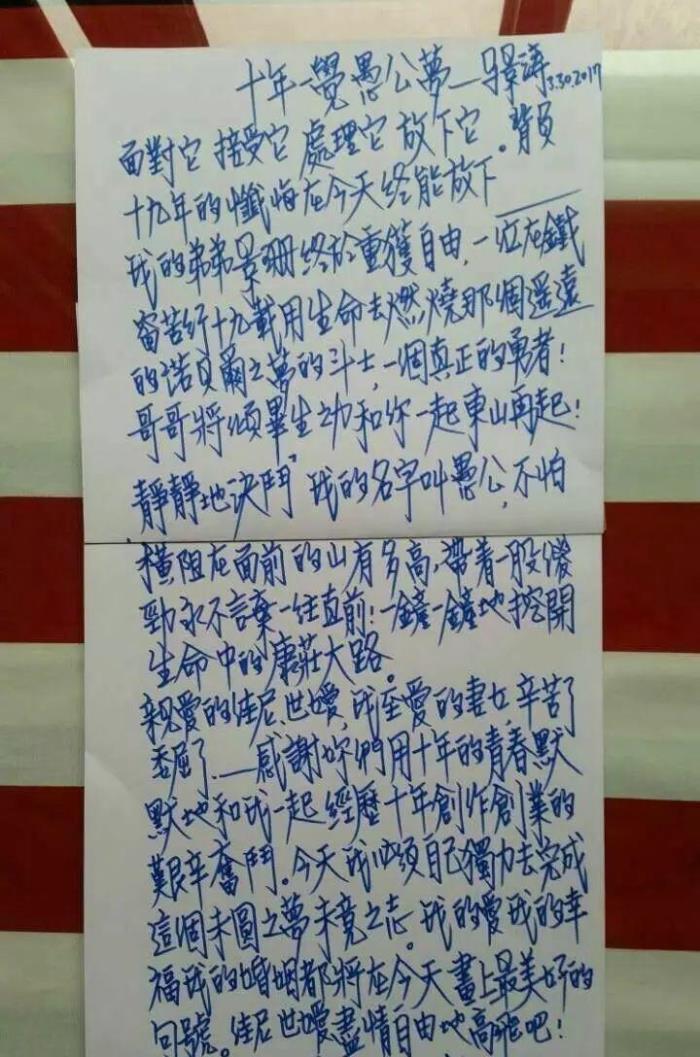 十年一覺愚公夢—景濤 3.30.2017
面對它 接受它 處理它 放下它。背負
十九年的懺悔在今天終能放下——
我的弟弟景珊終於重獲自由，一位在鐵
窗苦行十九載用生命去燃燒那個遥遠
的诺貝爾之夢的斗士，一個真正的勇者！
哥哥將傾畢生之功和你一起東山再起！
靜靜地決鬥 我的名字叫愚公，不怕
橫阻在面前的山有多高，帶着一股傻
勁永不言棄一往直前！一鏟一鏟地挖開
生命中的康莊大路。
親愛的佳尼、世嬡，我至愛的妻女，辛苦了
委屈了——感謝妳們用十年的青春默
默地和我一起經歷十年創作創業的
艱辛奮鬥。今天我必須自己獨力去完成
這個未圓之夢未竟之志。我的愛我的幸
福我的婚姻都將在今天畫上最美好的
句號。佳尼世嬡盡情自由地高飛吧！